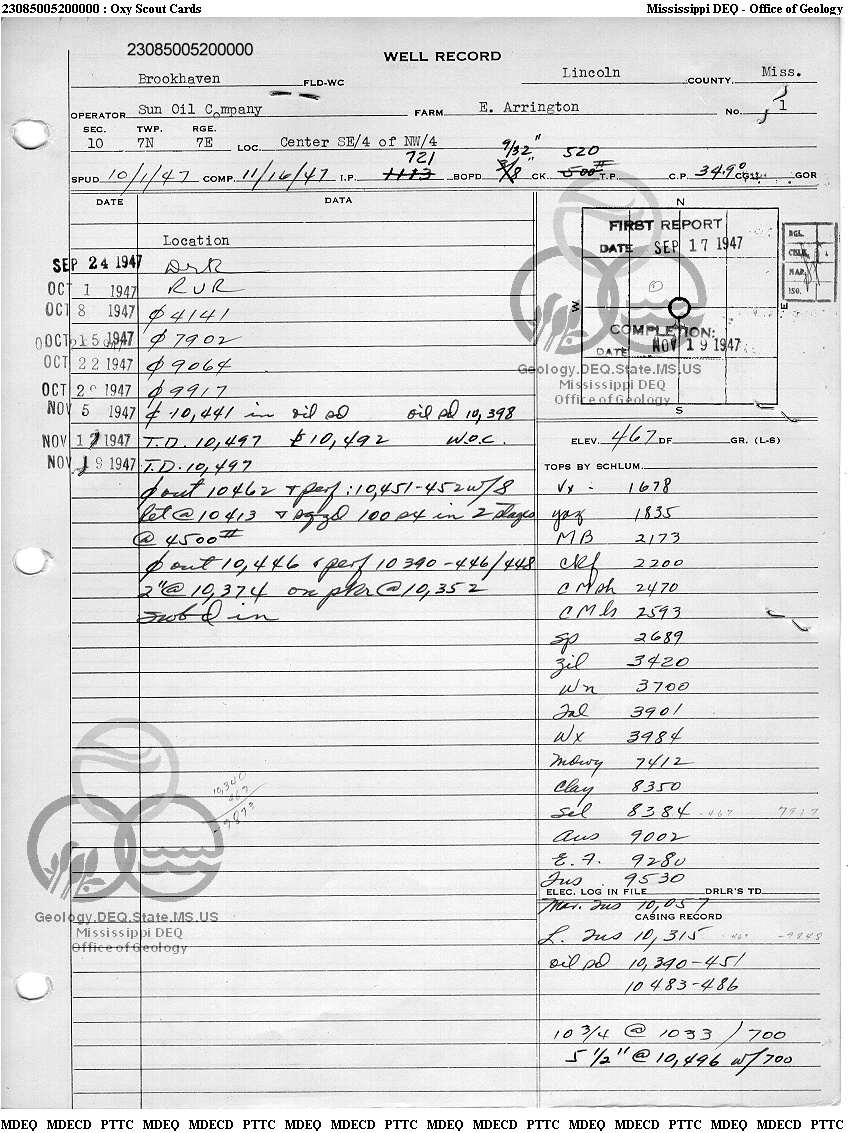 23085005200000 : Oxy Scout Cards Mississippi DEQ - Office of Geology
23085005200000
WELL RECORD
Brookhaven FLD-WC Lincoln COUNTY, Miss.
OPERATOR Sun Oil Company FARM E. Arrington NO. 1
SEC. TWP. RGE.
10 7N 7E LOC. Center SE/4 of NW/4
721 9/32" 520
SPUD 10/1/47 COMP. 11/16/47 I.P. 1183 BOPD 3/8" CK. 500# T.P. C.P. 34.9° GOR
DATE DATA
Location
SEP 24 1947 DrR
OCT 1 1947 RUR
OCT 8 1947 ȼ 4141
OCT 15 1947 ȼ 7902
OCT 22 1947 ȼ 9064
OCT 1947 ȼ 9917
NOV 5 1947 ȼ 10,441 in oil sd oil sd 10,398
NOV 1947 T.D. 10,497 10,492 W.O.C.
NOV 19 1947 T.D. 10,497
ȼ out 10462 + perf: 10,451-452 w/8
ret @ 10413 + sqzd 100 sx in 2 stages
@ 4500#
ȼ out 10,446 + perf 10390-446/448
2" @ 10,374 on pkr @ 10,352
Swb'd in
10,340
467
-9873
N
FIRST REPORT
DATE SEP 17 1947
W E
COMPLETION:
DATE NOV 19 1947
S
BGL.
CHLK.
MAP.
ISO.
Geology.DEQ.State.MS.US
Mississippi DEQ
Office of Geology
ELEV. 467 DF GR. (L-S)
TOPS BY SCHLUM.
Vx - 1678
yaz 1835
MB 2173
ckf 2200
CMsh 2470
CMls 2593
sp 2689
zil 3420
Wn 3700
Sal 3901
Wx 3984
Mdwy 7412
Clay 8350
Sel 8384 -467 7917
Aus 9002
E.F. 9280
Tus 9530
ELEC. LOG IN FILE DRLR'S TD
Mar. Tus 10,057
CASING RECORD
L. Tus 10,315 -467 -9848
oil sd 10,390-451
10483-486
10 3/4 @ 1033 / 700
5 1/2" @ 10,496 w/700
Geology.DEQ.State.MS.US
Mississippi DEQ
Office of Geology
MDEQ MDECD PTTC MDEQ MDECD PTTC MDEQ MDECD PTTC MDEQ MDECD PTTC MDEQ MDECD PTTC MDEQ MDECD PTTC